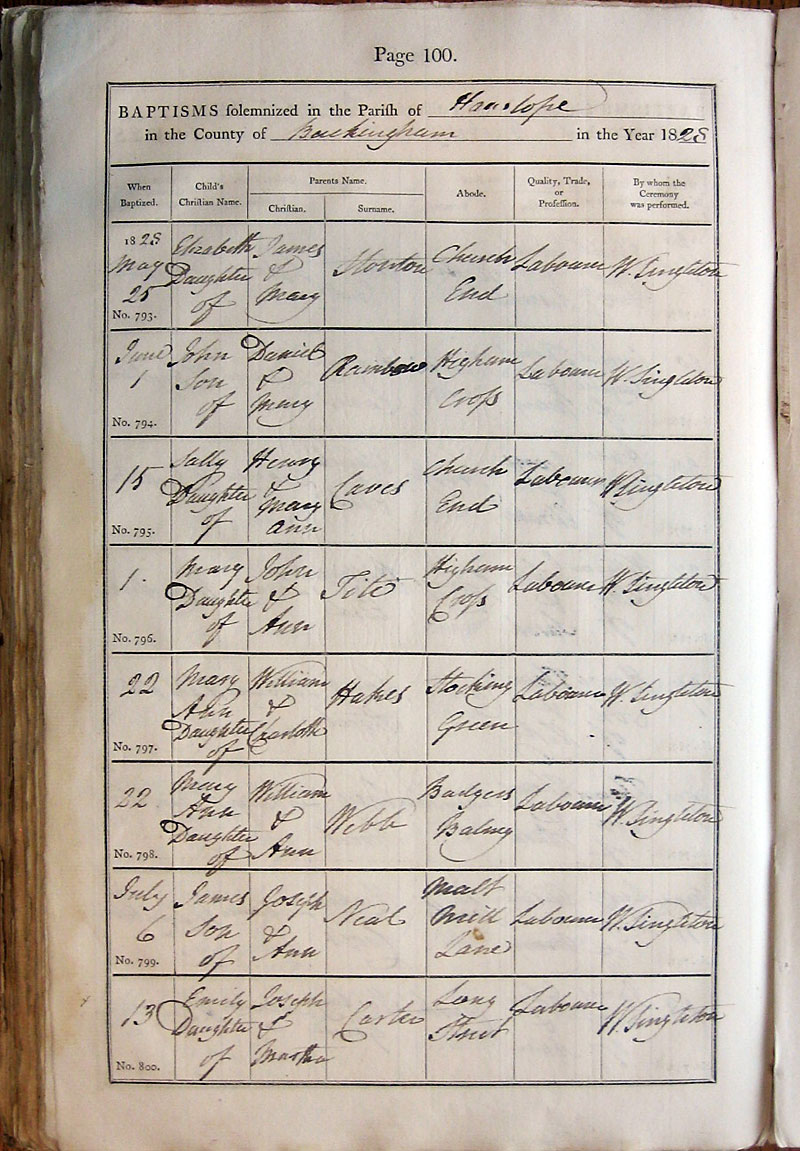 Page 100.
BAPTISMS solemnized in the Parish of Hanslope
in the County of Buckingham in the Year 1828
When Baptized.
Child's Christian Name.
Parents Name.
Christian.
Surname.
Abode.
Quality, Trade, or Profession.
By whom the Ceremony was performed.
1828 May 25
No. 793.
Elizabeth Daughter of
James & Mary
Church End
Labourer
W. Singleton
June 1
No. 794.
John Son of
Daniel & Mary
Rainbow
Higham Cross
Labourer
W. Singleton
15
No. 795.
Sally Daughter of
Henry & Mary Ann
Caves
Church End
Labourer
W Singleton
1.
No. 796.
Mary Daughter of
John & Ann
Tite
Higham Cross
Labourer
W. Singleton
22
No. 797.
Mary Ann Daughter of
William & Charlotte
Hakes
Stocking Green
Labourer
W. Singleton
22
No. 798.
Mary Ann Daughter of
William & Ann
Webb
Badgers
Labourer
W. Singleton
July 6
No. 799.
James Son of
Joseph & Ann
Neal
Malt Mill Lane
Labourer
W. Singleton
13
No. 800.
Emily Daughter of
Joseph & Martha
Carter
Long Street
Labourer
W. Singleton